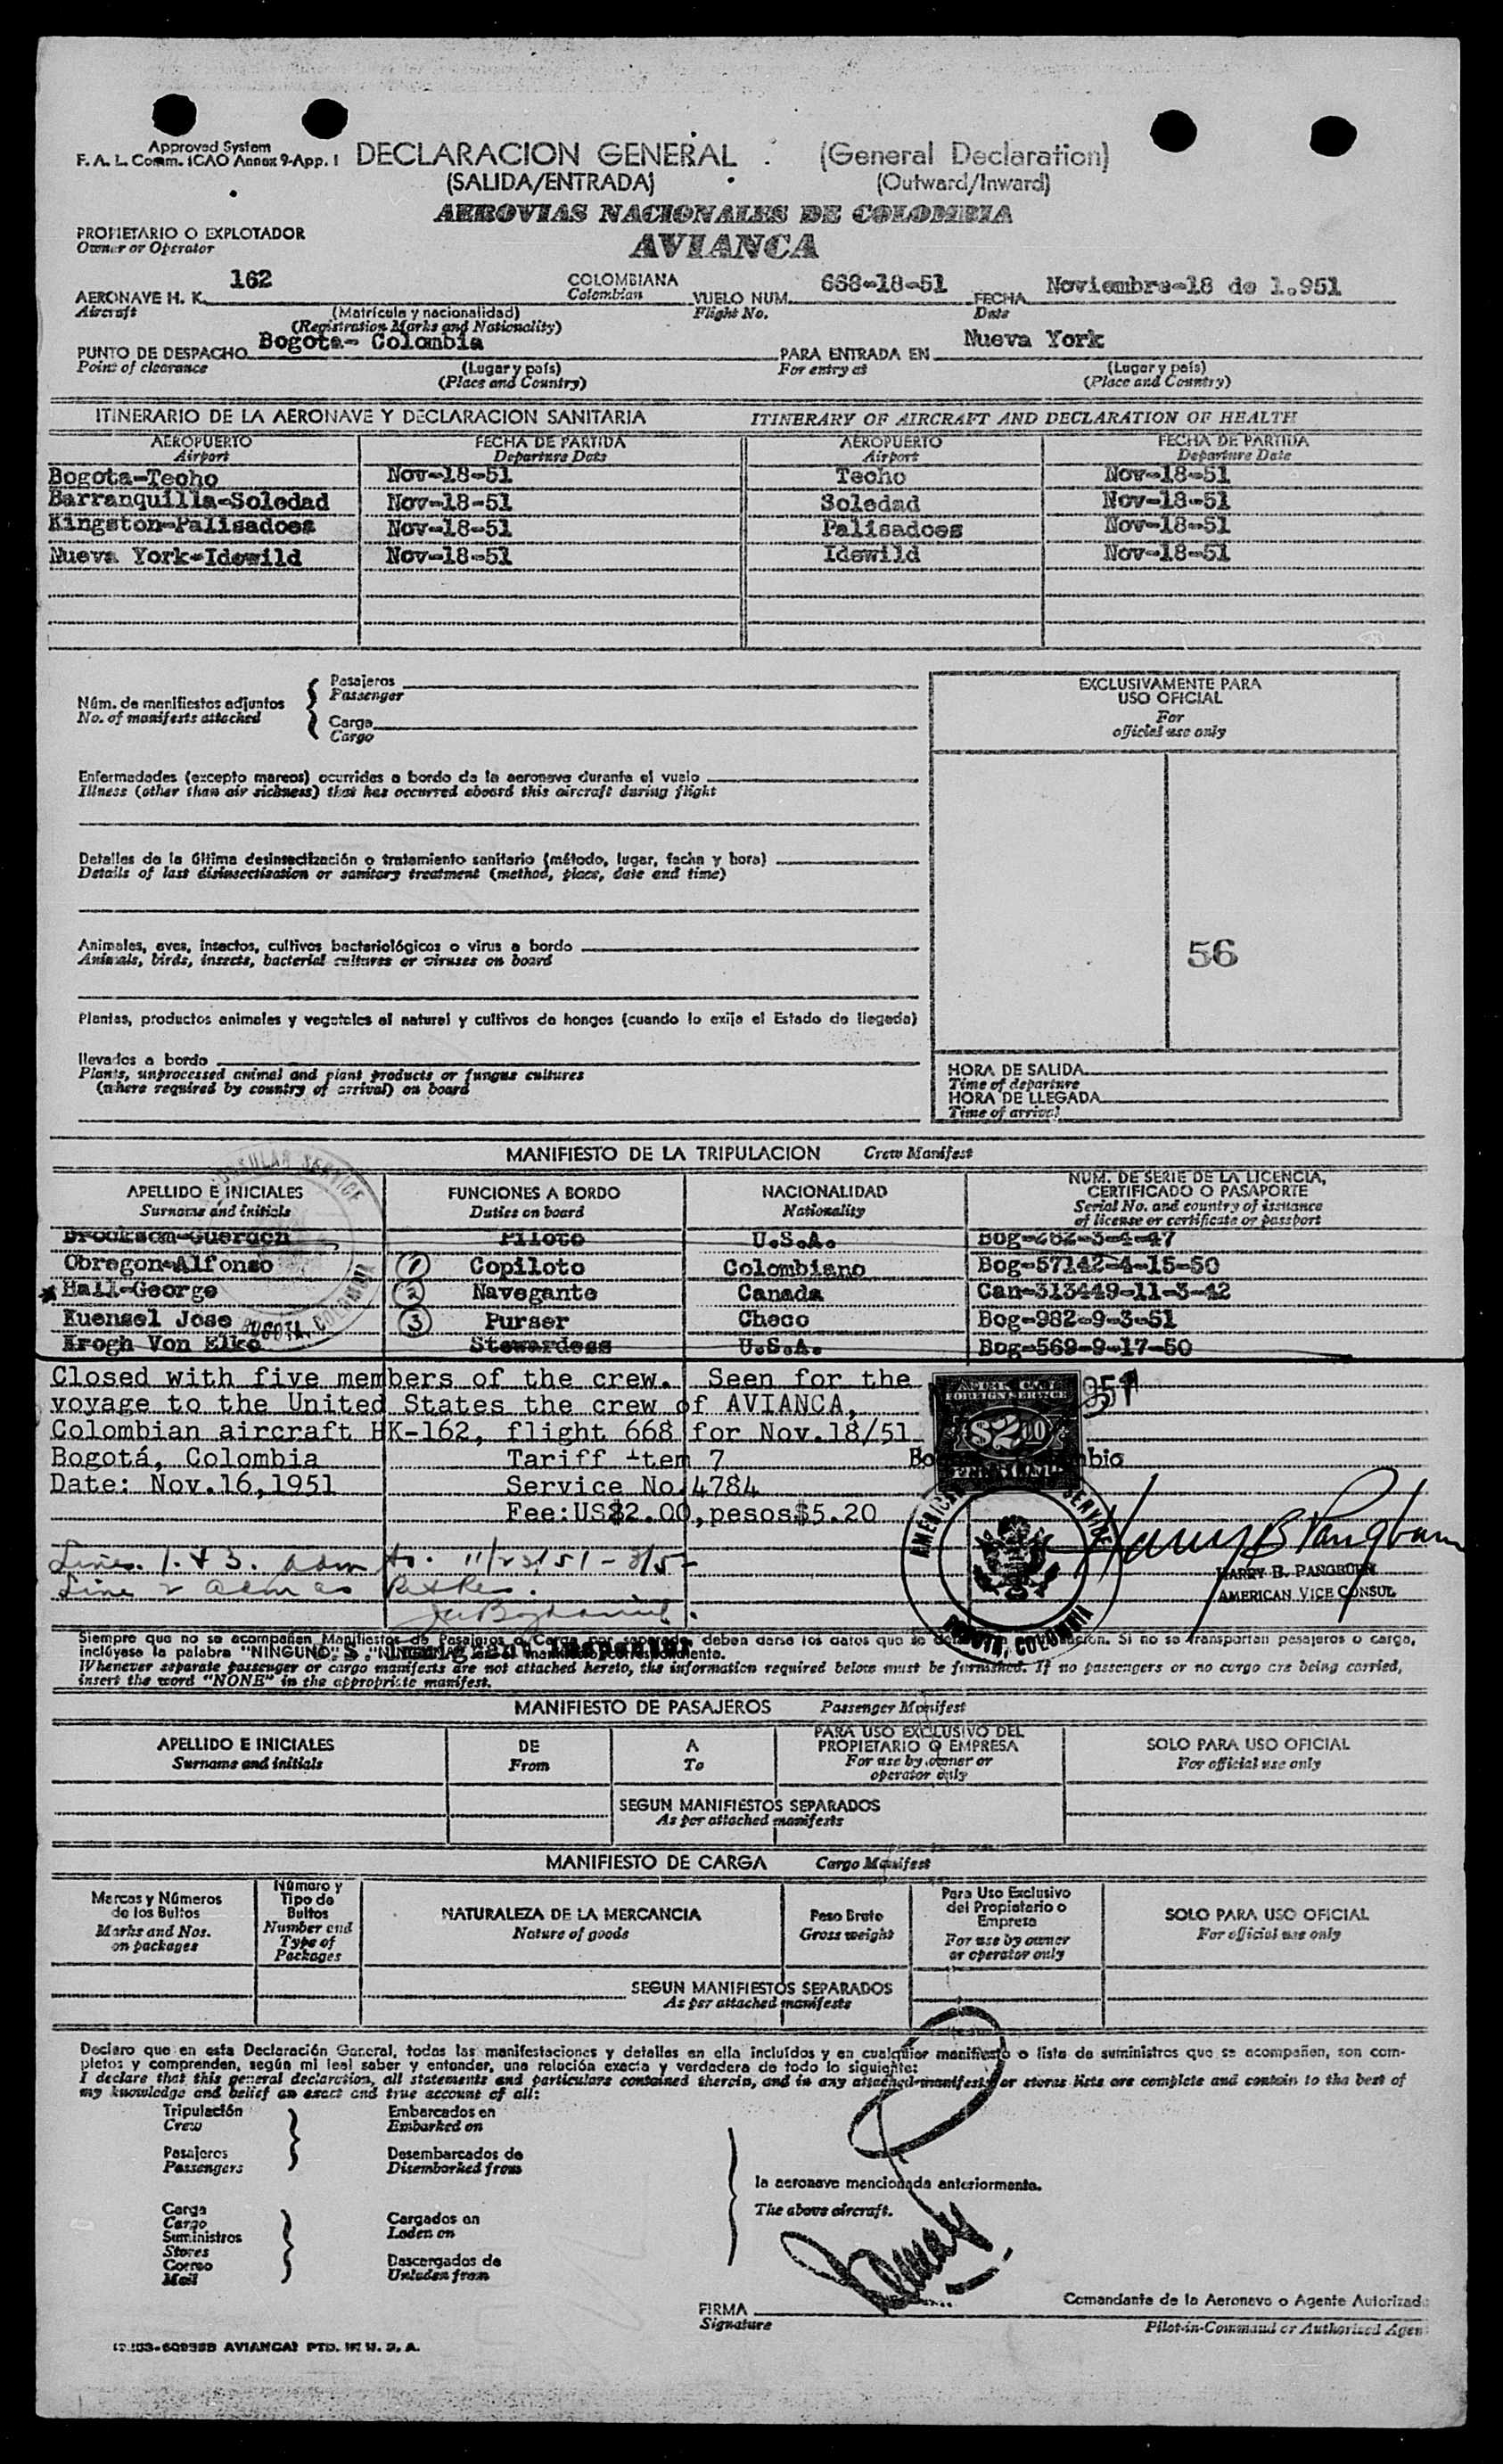 Approved System
F. A. L. Comm. ICAO Annex 9-App. 1
DECLARACION GENERAL (General Declaration)
(SALIDA/ENTRADA) (Outward/Inward)
AEROVIAS NACIONALES DE COLOMBIA
PROPIETARIO O EXPLOTADOR
Owner or Operator
AVIANCA
AERONAVE H. K. 162 COLOMBIANA VUELO NUM. 668-18-51 FECHA Noviembre-18 de 1.951
Aircraft Colombian Flight No. Date
(Matrícula y nacionalidad)
(Registration Marks and Nationality)
PUNTO DE DESPACHO Bogota- Colombia PARA ENTRADA EN Nueva York
Point of clearance (Lugar y país) For entry at (Lugar y país)
(Place and Country) (Place and Country)
ITINERARIO DE LA AERONAVE Y DECLARACION SANITARIA ITINERARY OF AIRCRAFT AND DECLARATION OF HEALTH
AEROPUERTO FECHA DE PARTIDA AEROPUERTO FECHA DE PARTIDA
Airport Departure Date Airport Departure Date
Bogota-Techo Nov-18-51 Techo Nov-18-51
Barranquilla-Soledad Nov-18-51 Soledad Nov-18-51
Kingston-Palisadoes Nov-18-51 Palisadoes Nov-18-51
Nueva York-Idewild Nov-18-51 Idewild Nov-18-51
Núm. de manifiestos adjuntos
No. of manifests attached
Pasajeros
Passenger
Carga
Cargo
EXCLUSIVAMENTE PARA
USO OFICIAL
For
official use only
Enfermedades (excepto mareos) ocurridas a bordo de la aeronave durante el vuelo
Illness (other than air sickness) that has occurred aboard this aircraft during flight
Detalles de la última desinsectización o tratamiento sanitario (método, lugar, fecha y hora)
Details of last disinsectisation or sanitary treatment (method, place, date and time)
Animales, aves, insectos, cultivos bacteriológicos o virus a bordo
Animals, birds, insects, bacterial cultures or viruses on board
56
Plantas, productos animales y vegetales al natural y cultivos de hongos (cuando lo exija el Estado de llegada)
llevados a bordo
Plants, unprocessed animal and plant products or fungus cultures
(where required by country of arrival) on board
HORA DE SALIDA
Time of departure
HORA DE LLEGADA
Time of arrival
MANIFIESTO DE LA TRIPULACION Crew Manifest
APELLIDO E INICIALES FUNCIONES A BORDO NACIONALIDAD NUM. DE SERIE DE LA LICENCIA,
CERTIFICADO O PASAPORTE
Surname and initials Duties on board Nationality Serial No. and country of issuance
of license or certificate or passport
Piloto U.S.A. Bog-262-3-4-47
Obregon-Alfonso 1 Copiloto Colombiano Bog-57142-4-15-50
* Hall-George 2 Navegante Canada Can-313449-11-3-42
Kuensel Jose 3 Purser Checo Bog-982-9-3-51
Krogh Von Elke Stewardess U.S.A. Bog-569-9-17-50
Closed with five members of the crew. Seen for the
voyage to the United States the crew of AVIANCA,
Colombian aircraft HK-162, flight 668 for Nov.18/51
Bogotá, Colombia Tariff item 7
Date: Nov.16,1951 Service No.4784
Fee:US$2.00,pesos$5.20
FOREIGN SERVICE
$2.00
AMERICAN SERVICE
BOGOTA, COLOMBIA
Harry B Pangburn
HARRY B. PANGBURN
AMERICAN VICE CONSUL
Lines 1. & 3. adm to. 11/23/51
Line 2 adm as
Siempre que no se acompañen Manifiestos de Pasajeros o Carga por separado, deben darse los datos que se Si no se transportan pasajeros o carga,
inclúyase la palabra "NINGUNO"
Whenever separate passenger or cargo manifests are not attached hereto, the information required below must be furnished. If no passengers or no cargo are being carried,
insert the word "NONE" in the appropriate manifest.
MANIFIESTO DE PASAJEROS Passenger Manifest
APELLIDO E INICIALES DE A PARA USO EXCLUSIVO DEL
PROPIETARIO O EMPRESA SOLO PARA USO OFICIAL
Surname and initials From To For use by owner or
operator only For official use only
SEGUN MANIFIESTOS SEPARADOS
As per attached manifests
MANIFIESTO DE CARGA Cargo Manifest
Marcas y Números
de los Bultos
Marks and Nos.
on packages
Número y
Tipo de
Bultos
Number and
Type of
Packages
NATURALEZA DE LA MERCANCIA
Nature of goods
Peso Bruto
Gross weight
Para Uso Exclusivo
del Propietario o
Empresa
For use by owner
or operator only
SOLO PARA USO OFICIAL
For official use only
SEGUN MANIFIESTOS SEPARADOS
As per attached manifests
Declaro que en esta Declaración General, todas las manifestaciones y detalles en ella incluídos y en cualquier manifiesto o lista de suministros que se acompañen, son com-
pletos y comprenden, según mi leal saber y entender, una relación exacta y verdadera de todo lo siguiente:
I declare that this general declaration, all statements and particulars contained therein, and in any attached manifests or stores lists are complete and contain to the best of
my knowledge and belief an exact and true account of all:
Tripulación Embarcados en
Crew Embarked on
Pasajeros Desembarcados de
Passengers Disembarked from
la aeronave mencionada anteriormente.
The above aircraft.
Carga
Cargo Cargados en
Suministros Laden on
Stores
Correo Descargados de
Mail Unladen from
FIRMA
Signature
Comandante de la Aeronave o Agente Autorizado
Pilot-in-Command or Authorized Agent
AVIANCA: PTD. IN U. S. A.